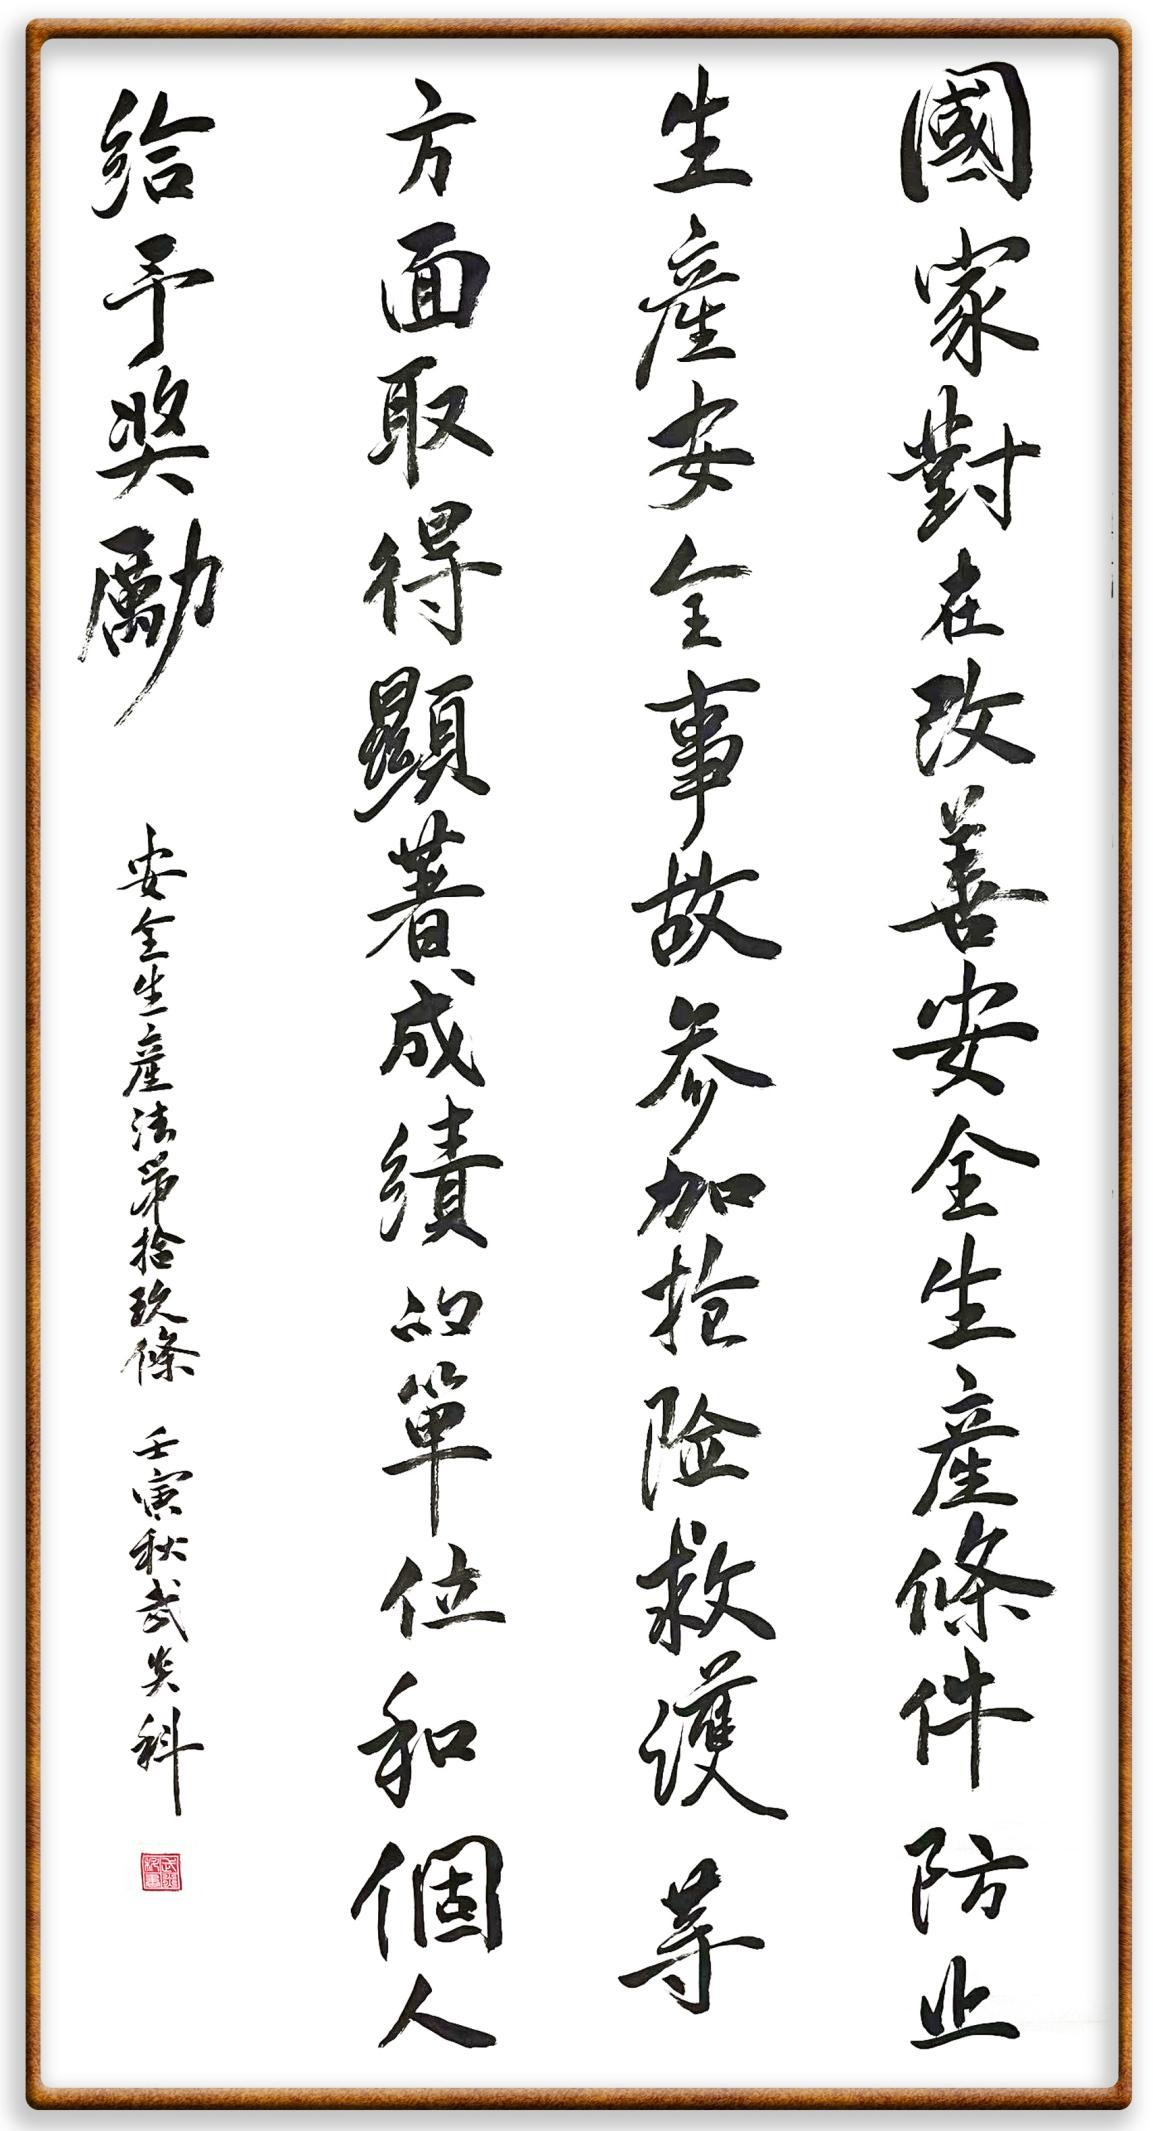 國家對在改善安全生産條件防止
生産安全事故参加抢险救護等
方面取得顯著成績的單位和個人
给予奖勵
安全生産法第拾玖條 壬寅秋武炎科